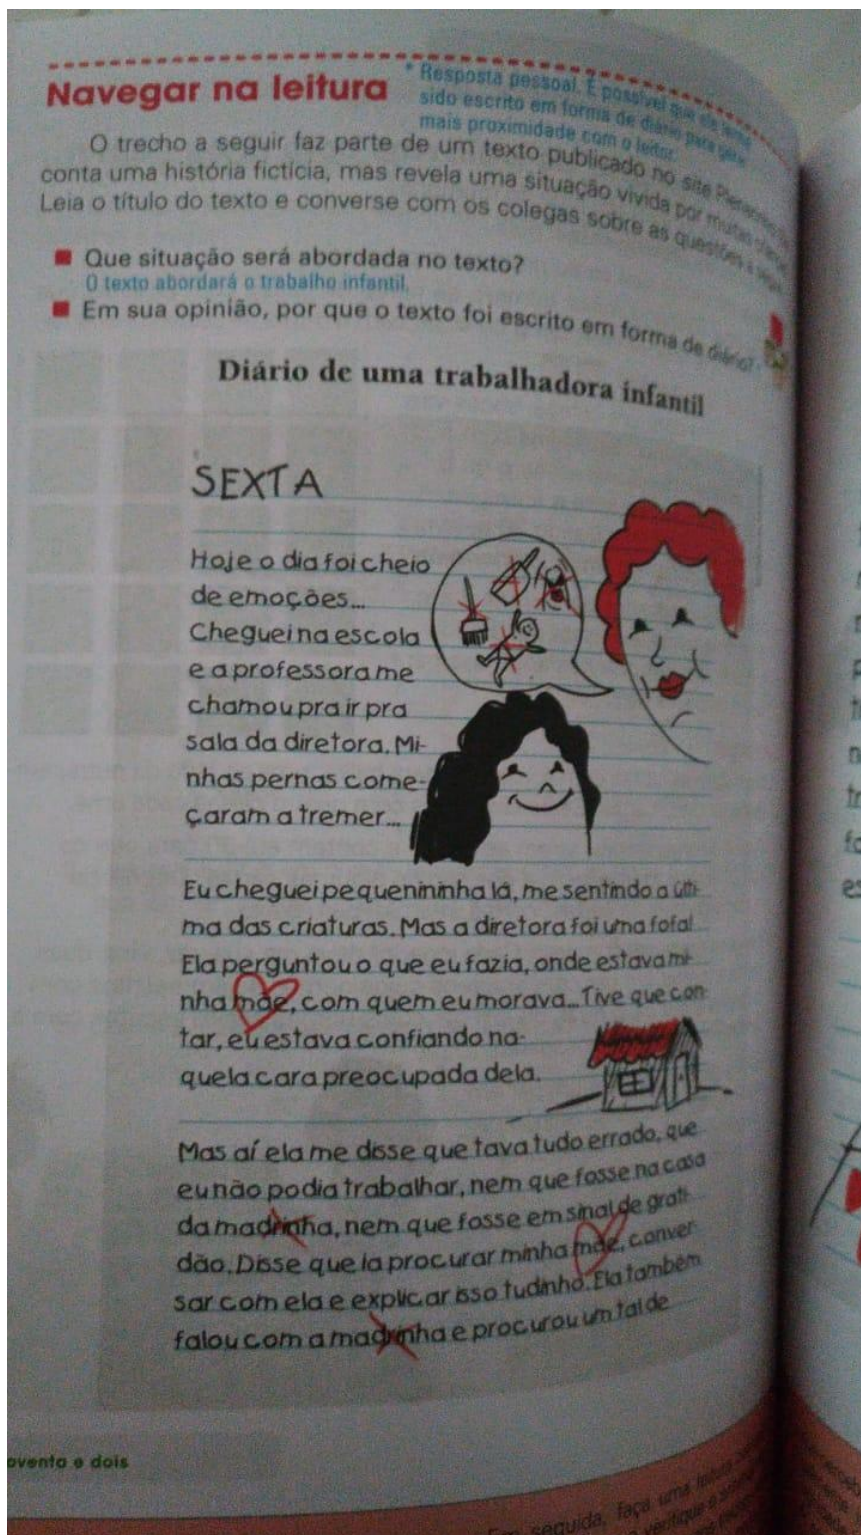 Navegar na leitura
* Resposta pessoal. É possível que ele tenha
sido escrito em forma de diário para gerar
mais proximidade com o leitor.
O trecho a seguir faz parte de um texto publicado no site
conta uma história fictícia, mas revela uma situação vivida por muitas
Leia o título do texto e converse com os colegas sobre as questões a seguir.
Que situação será abordada no texto?
O texto abordará o trabalho infantil.
Em sua opinião, por que o texto foi escrito em forma de diário?
Diário de uma trabalhadora infantil
SEXTA
Hoje o dia foi cheio
de emoções...
Cheguei na escola
e a professora me
chamou pra ir pra
sala da diretora. Mi-
nhas pernas come-
çaram a tremer...
Eu cheguei pequenininha lá, me sentindo a últi-
ma das criaturas. Mas a diretora foi uma fofa!
Ela perguntou o que eu fazia, onde estava mi-
nha mãe, com quem eu morava... Tive que con-
tar, eu estava confiando na-
quela cara preocupada dela.
Mas aí ela me disse que tava tudo errado, que
eu não podia trabalhar, nem que fosse na casa
da madrinha, nem que fosse em sinal de grati-
dão. Disse que ia procurar minha mãe, conver-
sar com ela e explicar isso tudinho. Ela também
falou com a madrinha e procurou um tal de
oventa e dois
Em seguida, faça uma leitura